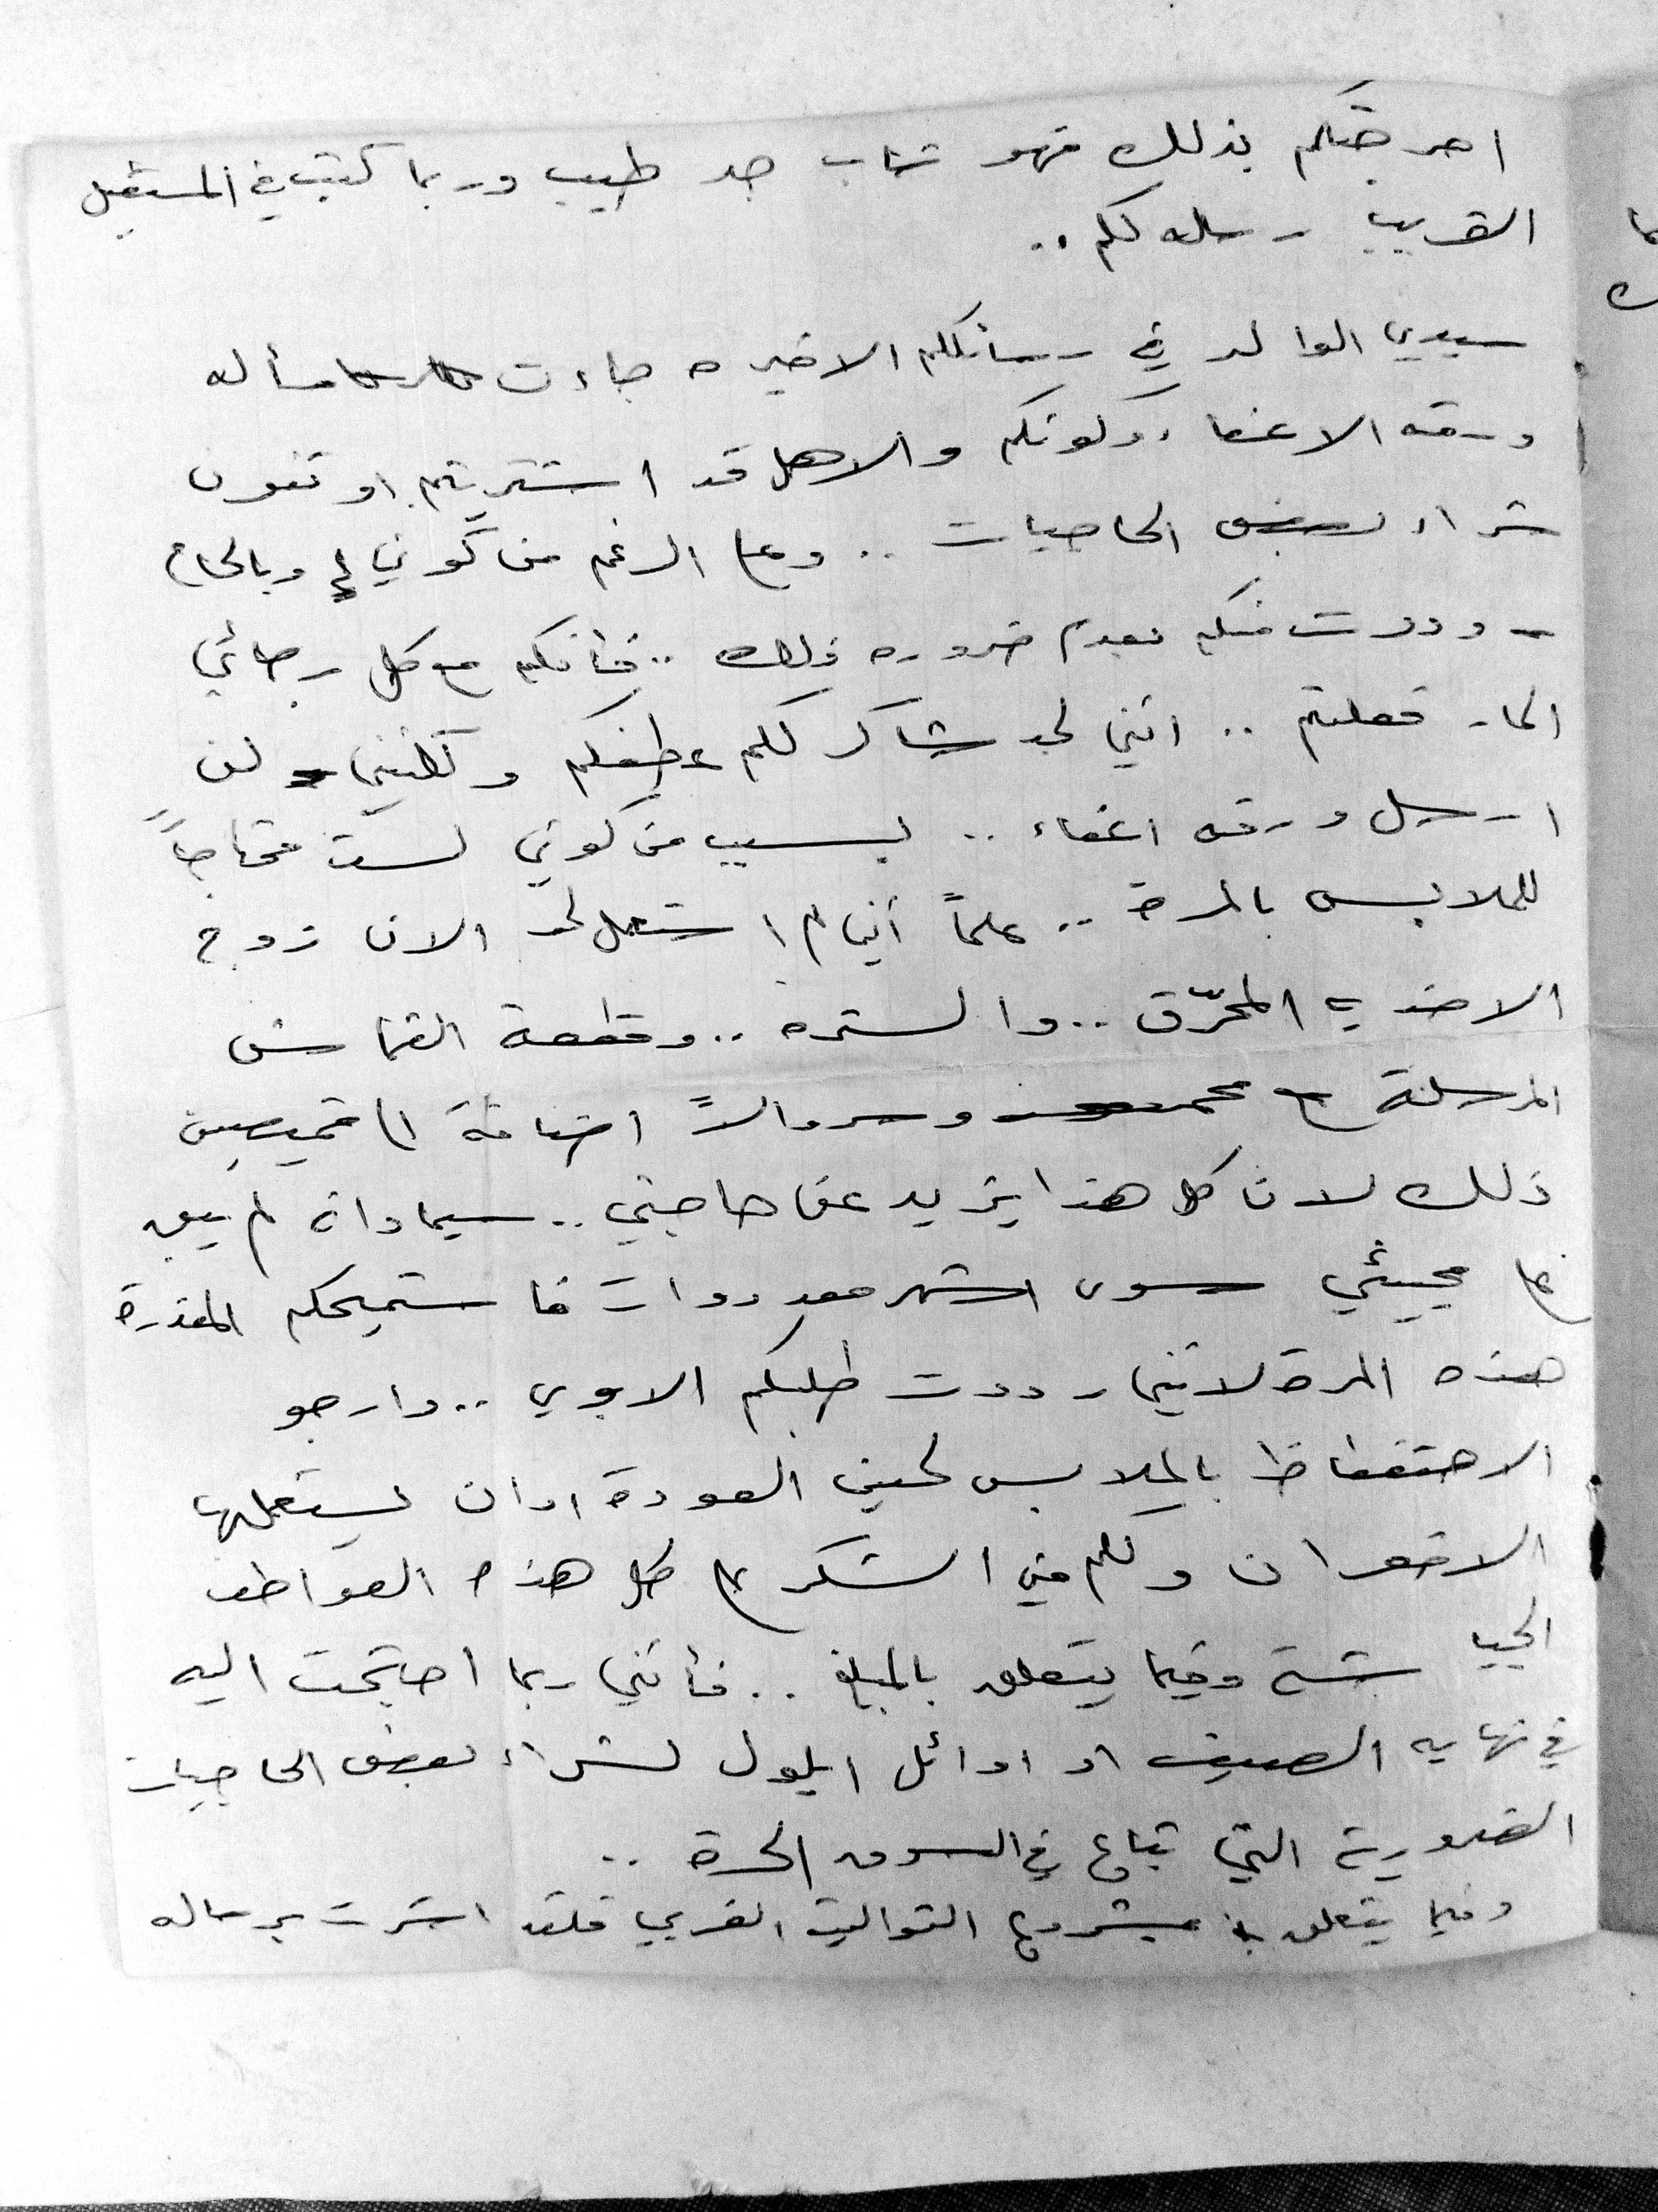 احرجتكم بذلك فهو شاب جد طيب وربما كتبت في المستقبل
القريب رساله لكم ..
سيدي الوالد في رسائلكم الاخيره جاءت مسأله
ورقه الاعفاء وكونكم والاهل قد اشتريتم او تنوون
شراء بعض الحاجيات .. وعلى الرغم من كوني وبالحاح
وددت منكم بعدم ضروره ذلك .. فأنكم مع كل رجائي
الحار فعلتم .. انني لجد شاكر لكم عطفكم ولكنني لن
ارسل ورقه اعفاء .. بسبب من كوني لست محتاجاً
للملابس بالمرة .. علماً أنني لم استعمل لحد الان زوج
الاحذيه المخرّق .. والستره .. وقطعة القماش
المرسلة مع وسروالاً اضافة الى قميصين
ذلك لان كل هذا يزيد عن حاجتي .. سيما وانه لم يبق
على مجيئي سوى اشهر معدودات فاستميحكم المعذرة
هذه المرة لانني رددت طلبكم الابوي .. وارجو
الاحتفاظ بالملابس لحين العودة اوان يستعملها
الاخوان ولكم مني الشكر على كل هذه العواطف
الجياشة وفيما يتعلق بالمبلغ .. فأنني ربما احتجت اليه
في نهايه الصيف او اوائل ايلول لشراء بعض الحاجيات
الضرورية التي تباع في السوق الحرة ..
وفيما يتعلق بمشروع التواليت الغربي فلقد اشرت برساله